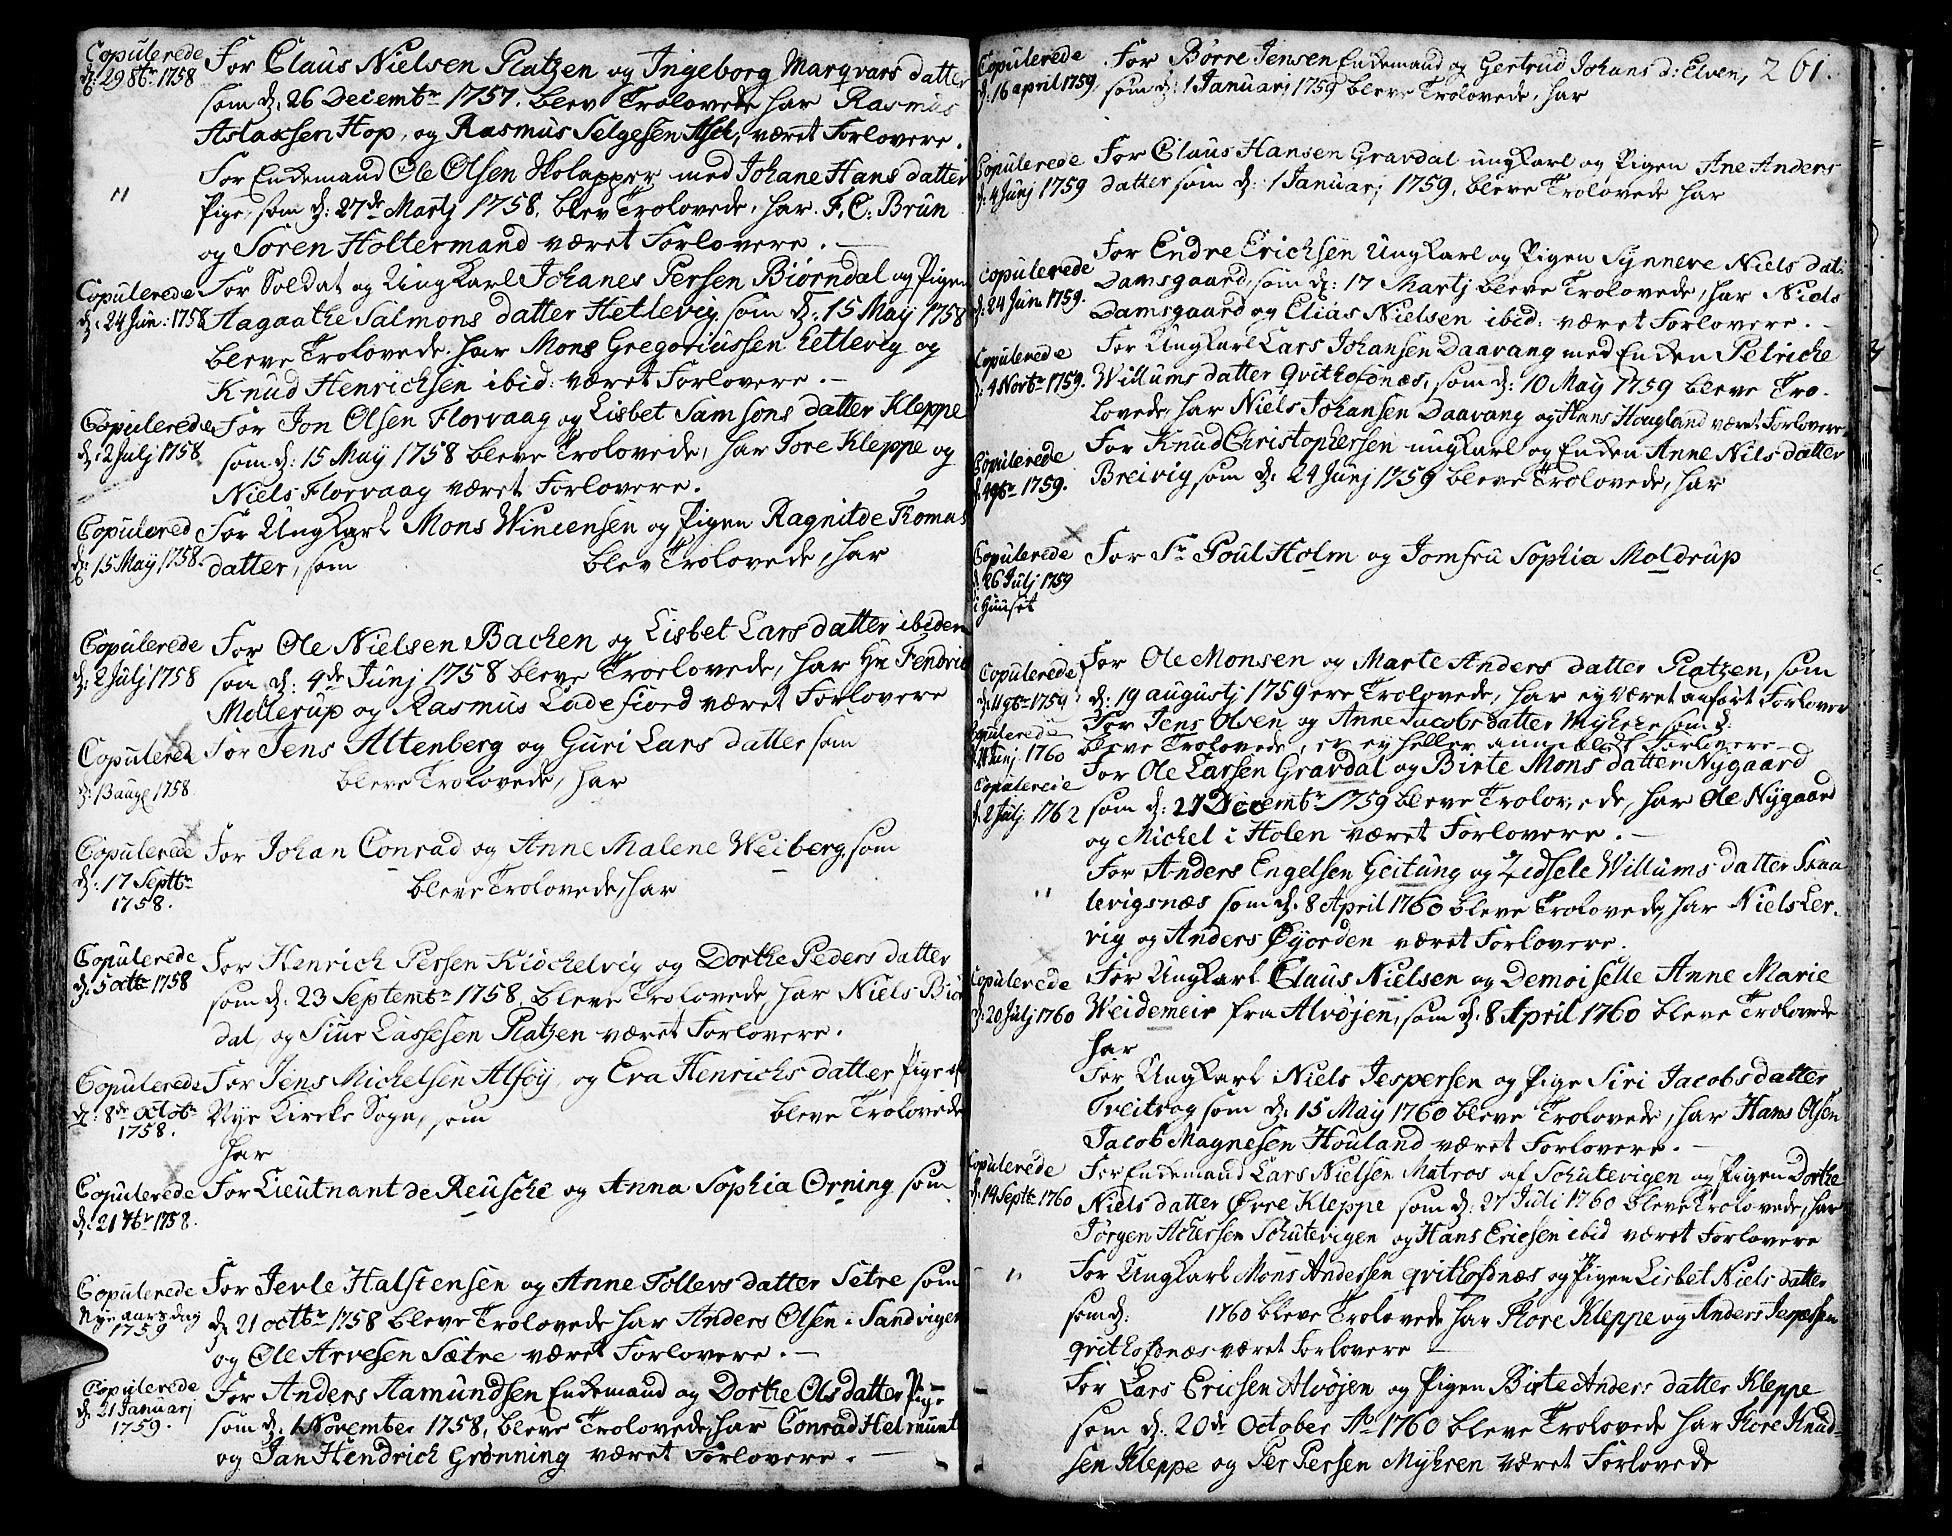 Copulerede
d: 29 8tr 1758
For Claus Nielsen Platzen og Ingeborg Marqvars datter
som d. 26 Decembr 1757. blev Trolovede har Rasmus
Aslaksen Hop, og Rasmus Selgesen Ask, været Forlovere.
"
For Enkemand Ole Olsen med Johane Hans datter
Pige, som d: 27de Martj 1758, blev Trolovede, har F. C: Brun
og Søren Holtermand været Forlovere.
Copulerede
d: 24 Jun: 1758
For Soldat og Ung Karl Johanes Persen Biørndal og Pigen
Aagaathe Salmons datter Hetlevig som d: 15 May 1758
bleve Trolovede har Mons Gregoriussen hetlevig og
Knud Henrichsen ibid: været Forlovere.
Copulerede
d: 2 Julj 1758
For Jon Olsen Florvaag og Lisbet Samsons datter Kleppe
som d: 15 May 1758 bleve Trolovede, har Tore Kleppe og
Niels Florvaag været Forlovere.
Copulered
d: 15 May 1758.
For Ung Karl Mons Wincensen og Pigen Ragnilde Thomas
datter, som blev Trolovede, har
Copulerede
d: 2 Julj 1758
For Ole Nielsen Backen og Lisbet Lars datter ibidem
som d: 4de Junj 1758 bleve Troelovede, har Hr Fendric
Mollerup og Rasmus Ladefiord været Forlovere
Copulered
d: 13 aug 1758
For Jens Altenberg og Guri Lars datter som
bleve Trolovede, har
Copulerede
d: 17 Septbr
1758.
For Johan Conrad og Anne Malene Weiberg, som
bleve Trolovede, har
Copulerede
d: 5 octbr 1758
For Henrich Persen Kiøckelvig og Dorthe Peders datter
som d: 23 Septembr 1758, bleve Trolovede har Niels Biør
dal, og Siur Lassesen Platzen været Forlovere.
Copulerede
d: 8de Octobr
1758.
For Jens Michelsen Alføy, og Eva Henrichs datter Pige af
Nye Kircke Sogn, som bleve Trolovede
har
Copulerede
d: 21 7br 1758.
For Lieutnant de Reusche og Anna Sophia Orning som
Copulerede
Nye aars dag
1759
For Jerle Halstensen og Anne Tollers datter Setre som
d. 21 octbr 1758 bleve Trolovede har Anders Olsen i Sandvigen
og Ole Arvesen Sætre været Forlovere.
Copulerede
d. 21 Januarj
1759.
For Anders Aamundsen Enkemand og Dorthe Olsdatter Pige
som d. 1 November 1758, bleve Trolovede, har Conrad Helmunt
og Jan Hendrich Grønning været Forlovere.
261.
Copulerede
d. 16 april 1759
For Børre Jensen Enkemand og Gertrud Johans d: Elven,
som d: 1 Januarj 1759 bleve Trolovede, har
Copulerede
d: 4 Junj 1759
For Claus Hansen Gravdal ung Karl og Pigen Ane Anders
datter som d: 1 Januarj 1759, bleve Trolovede har
Copulerede
d: 24 Jun 1759.
For Endre Erichsen Ung Karl og Pigen Synneve Niels dat:
Damsgaard, som d: 17 Martj bleve Trolovede, har Niels
Damsgaard og Elias Nielsen ibid: været Forlovere.
Copulerede
d: 4 Novbr 1759.
For Ung Karl Lars Johansen Daavang med Enken Petriche
Willums datter Qvitholdnæs, som d: 10 May 1759 bleve Tro-
lovede, har Niels Johansen Daavang og Hans Hougland været Forlovere
Copulerede
d. 4 9br 1759.
For Knud Christophersen ung Karl og Enken Anne Nils datter
Breivig som d: 24 Junj 1759 bleve Trolovede, har
Copulerede
d. 26 Julj 1759
i Huuset
For Sr Poul Holm og Jomfru Sophia Moldrup
Copulerede
d: 11 9br 1759
For Ole Monsen og Marte Anders datter Platzen, som
d: 19 augustj 1759 ere Trolovede, har ey været anført Forlover
Copulerede
Junj 1760
For Jens Olsen og Anne Jacobs datter Myhre som d:
bleve Trolovede, er ey heller anmeldt Forlovere
Copulerede
d. 2 Julj 1762
For Ole Larsen Gravdal og Birte Mons datter Nygaard
som d: 27 Decembr 1759 bleve Trolovede, har Ole Nygaard
og Michel i Holen været Forlovere.
"
For Anders Engelsen Geitung og Zidsele Willums datter Skaa
levigsnæs som d. 8 April 1760 bleve Trolovede, har Niels Ler-
vig og Anders Øyorden været Forlovere.
Copulerede
d: 20 Julj 1760
For Ung Karl Claus Nielsen og Demoiselle Anne Marie
Weidemeir fra Alvøjen, som d. 8 April 1760 bleve Trolovede
har
For Ung Karl Niels Jespersen og Pige Siri Jacobs datter
Treitrag som d. 15 May 1760 bleve Trolovede, har Hans Olsen
Jacob Magnesen Houland været Forlovere.
Copulerede
d: 14 Septbr 1760
For Enkemand Lars Nielsen Matros af Schutevigen og Pigen Dorthe
Niels datter Øvre Kleppe som d. 27 Juli 1760 bleve Trolovede, har
Jørgen Ackersen Schutevigen og Hans Ericsen ibid været Forlovere
"
For Ung Karl Mons Andersen qvitholdnæs og Pigen Lisbet Niels datter
som d: 1760 bleve Trolovede har Thore Kleppe og Anders Jespersen
qvitholdnæs været Forlovere
For Lars Ericsen Alvøjen og Pigen Birte Anders datter Kleppe
som d: 20de October Ao 1760 bleve Trolovede har Thore Knud-
sen Kleppe og Per Persen Myhren været Forlovede